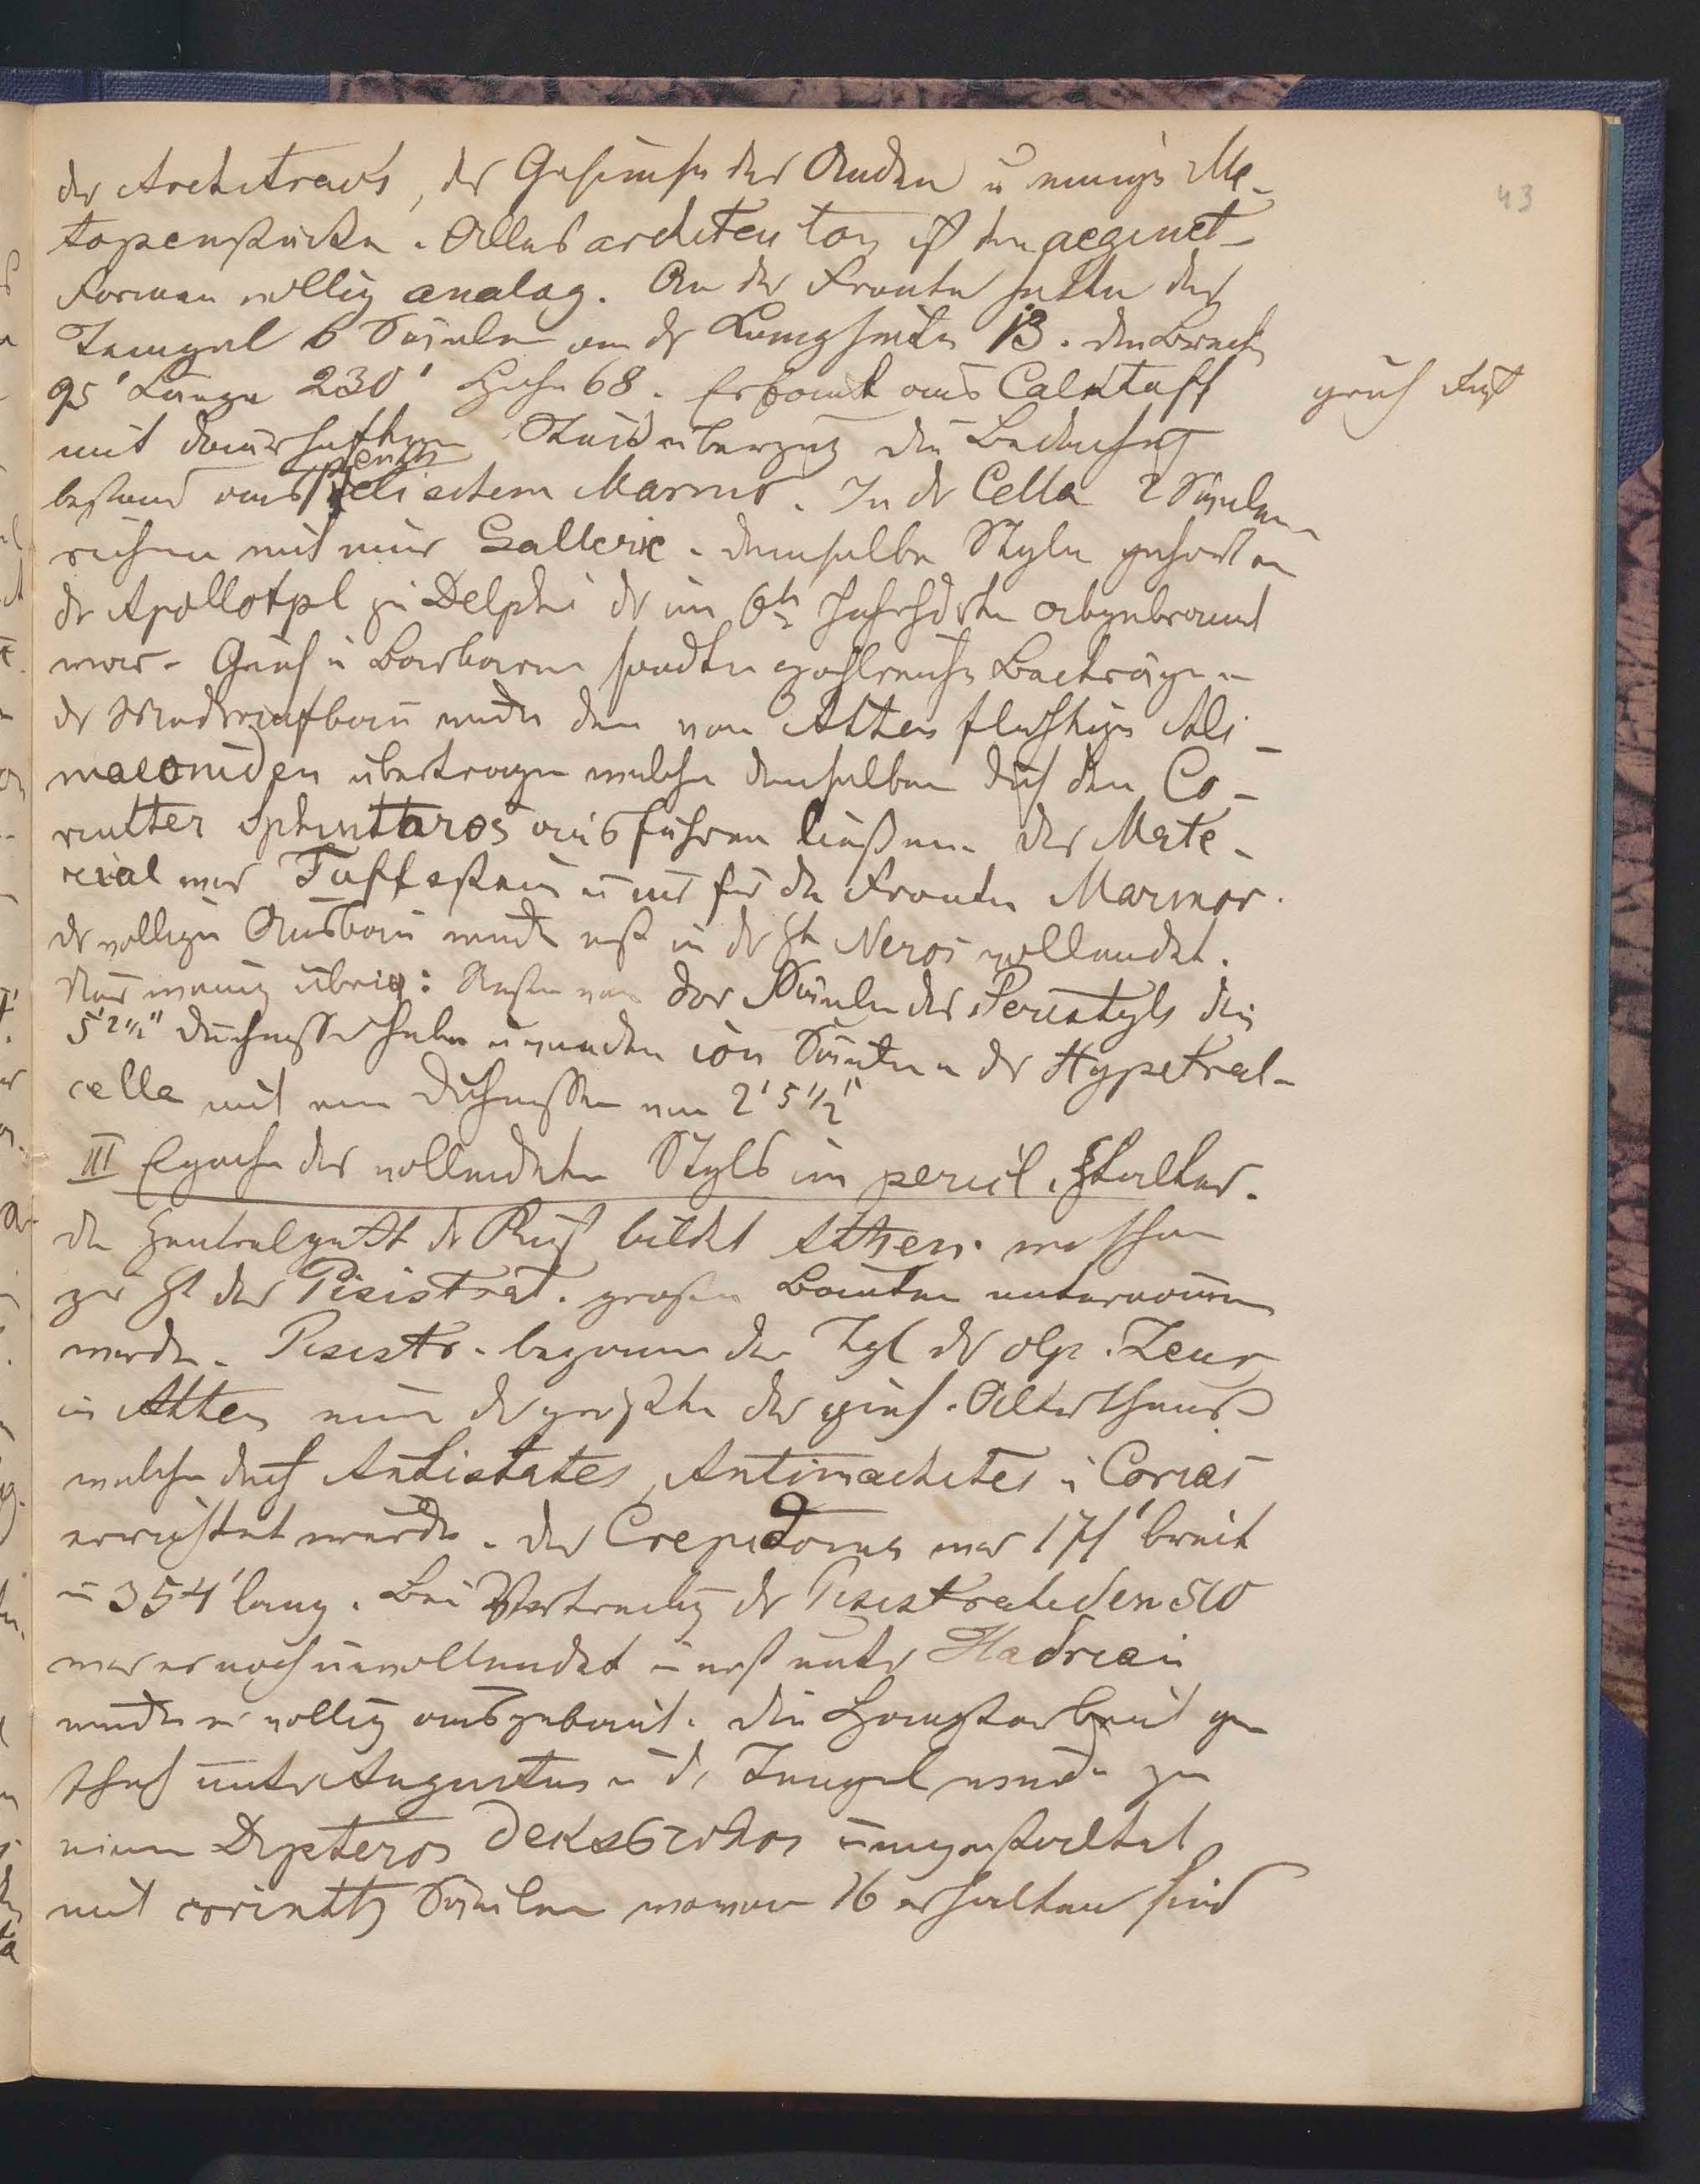 der Architravs, der Gesimse der Anden u einige Me-
topenstücke. Alles architekton ist den aeginet-
Formen völlig analog. An der Fronte hatte der
Tempel 6 Säulen an der Langseite 13. Die Breite
95' Länge 230' Höhe 68. Erbaut aus Calktuff
griech Fuß
43
mit dauerhaftem Stucküberzug die Bedachung
bestand aus pentelischem Marmor. In der Cella 2 Säulen
reihen mit einer Gallerie. Demselben Style gehört an
der Apollotpl zu Delphi der im 6ten Jahrhdrt abgebrannt
war. Griech u Barbaren sandten zahlreiche Beiträge u
der Wiederaufbau wurde den von Athen flüchtigen Alc-
maeoniden übertragen welche denselben durch den Co-
rinther Sphintaros ausführen ließen. Das Mate-
rial war Tuffstein u nur für die Fronte Marmor.
der völlige Ausbau wurde erst in der Zt Neros vollendet.
Nur wenig übrig: Reste von dor Säulen des Peristyls die
5'2½" Durchmesser haben u von den ion Säulen der Hypetral-
cella mit einem Durchmesser von 2'5½"
III Epoche des vollendeten Styls im pericl. Ztalter.
Den Zentralpunkt der Kunst bildet Athen. wo schon
zur Zt der Pisistrat. große Bauten unternommen
wurden. Pisistr. begann den Tpl des olp. Zeus
in Athen einer der größten des griech. Alterthums
welcher durch Antistates, Antimachites u Corias
errichtet wurde. Das Crepidoma war 171' breit
u 354' lang. Bei Vertreibg der Pisistratiden 510
war er noch unvollendet u erst unter Hadrian
wurde er völlig ausgebaut. Die Hauptarbeit ge
schah unter Augustus u der Tempel wurde zu
einem Dipteros dekastylos umgestaltet
mit corinth Säulen wovon 16 erhalten sind